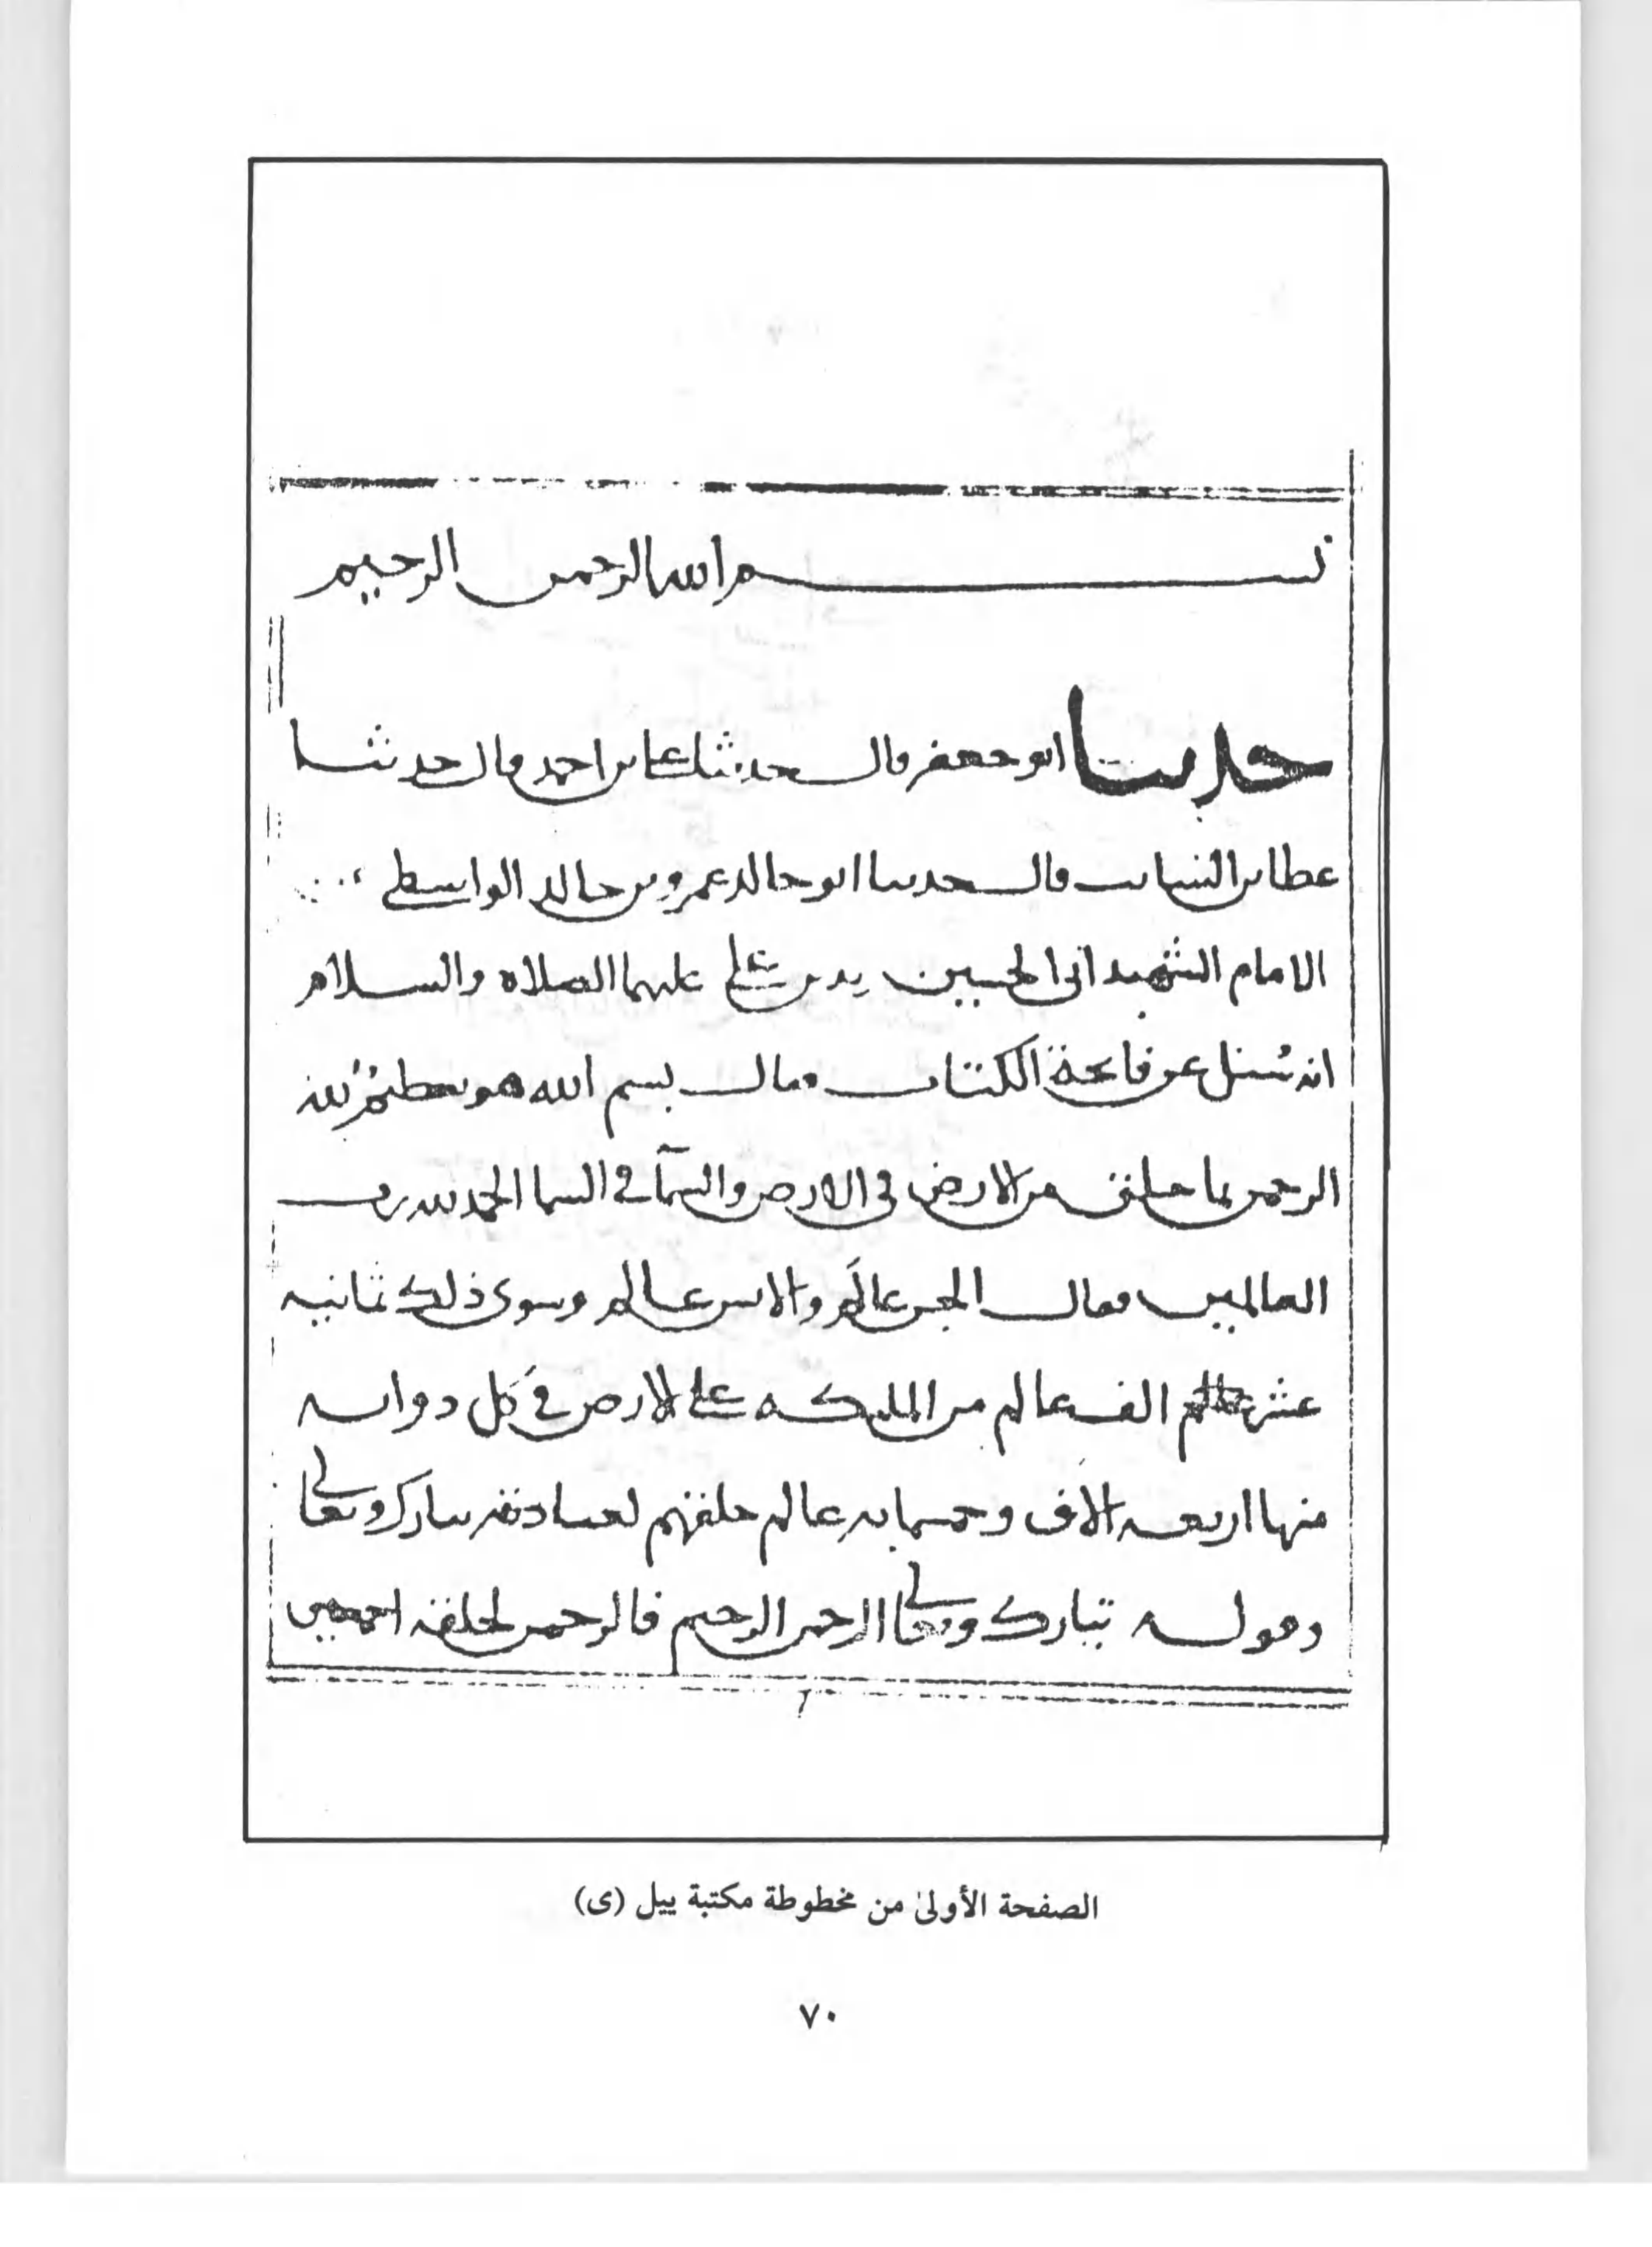 بسم الله الرحمن الرحيم
حدثنا ابو جعفر قال حدثنا علي بن احمد قال حدثنا
عطا بن السائب قال حدثنا ابو خالد عمرو بن خالد الواسطي
الامام الشهيد ابى الحسين زيد بن علي عليهما الصلاه والسلام
انه سُئل عن فاتحة الكتاب فقال بسم الله هو تعظيمٌ لله
الرحمن بما خلق من الارض في الارض والسمآ في السما الحمد لله رب
العالمين فقال الجن عالَم والانس عالم وسوى ذلك ثمانيه
عشر الف عالم من المليكه على الارض في كل زوايه
منها اربعه الاف وخمسمايه عالم خلقهم لعبادته تبارك وتعالى
وقوله تبارك وتعالى الرحمن الرحيم فالرحمن لخلقه اجمعين
الصفحة الأولىٰ من مخطوطة مكتبة ييل (ى)
٧٠